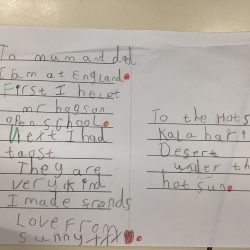 To mum and dad
I am at England.
First I helet
mr hogson
open school.
Next I had
taost
They are
very kind
I made srends
Love From
sunny xxx
To the Hots
Kalahari
Desert
under th
hot sun.